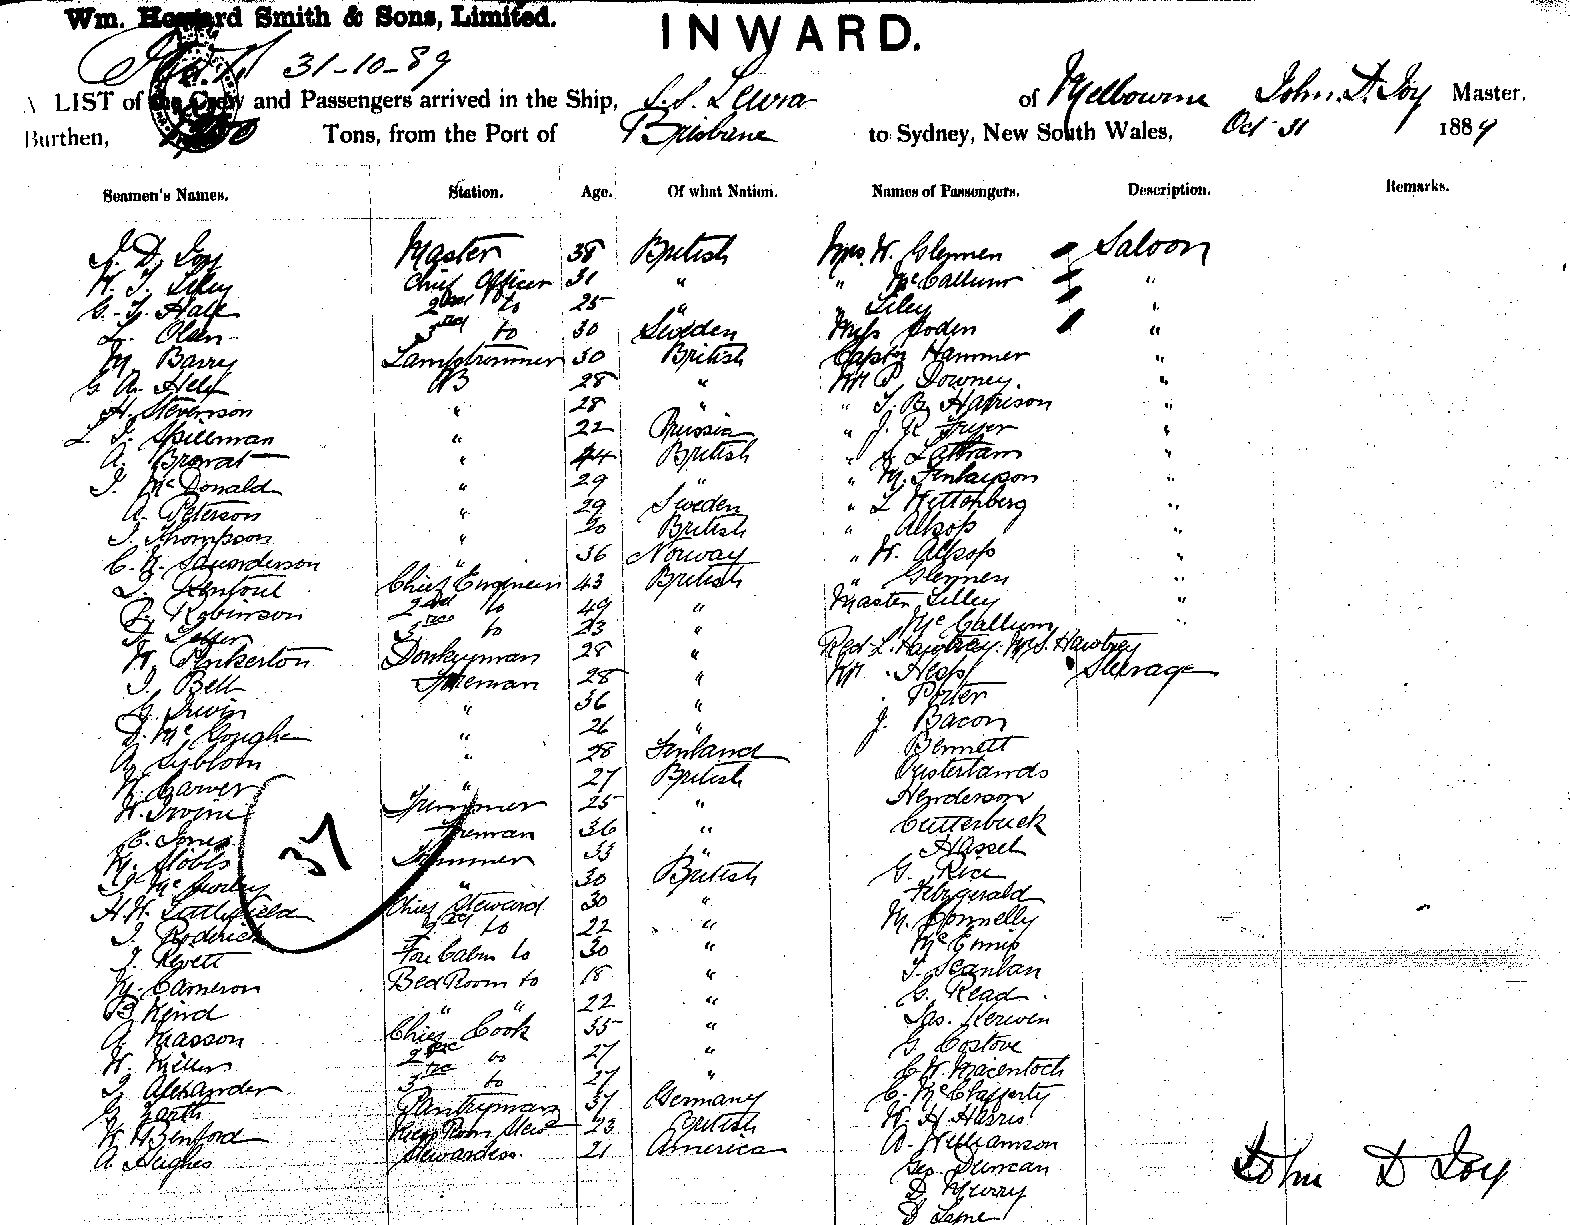 Wm. Howard Smith & Sons, Limited.
INWARD.
31-10-89
A LIST of the Crew and Passengers arrived in the Ship, S.S. Leura of Melbourne John. D. Joy Master,
Burthen, Tons, from the Port of Brisbane to Sydney, New South Wales, Oct 31 1889
Seamen's Names. Station. Age. Of what Nation. Names of Passengers. Description. Remarks.
J. D. Joy Master 38 British Mrs. W. Glennen Saloon
Chief Officer 31 " " McCallum "
2nd do 25 " " Lilley "
L. Olsen 3rd do 30 Sweden Miss Boden "
M. Barry Lamptrimmer 30 British Captn Hammer "
AB 28 " Mr P. Downey. "
H. Stevenson " 28 " " T. B. Harrison "
L. J. Spillman " 22 Prussia " J. R. Fryer "
A. " 44 British " Latham "
J. McDonald " 29 " " M. Finlayson "
A. Peterson " 29 Sweden " L Wettonberg "
J. Thompson " 20 British " Allsop "
" 36 Norway " W. Allsop "
Chief Engineer 43 British " Glennen "
Robinson 2nd do 49 " Master Lilley "
3rd do 23 " McCallum "
W. Pinkerton Donkeyman 28 " Revd L. Hawtrey. Mrs. Hawtrey
J. Bell Fireman 28 " Mr. Hess Steerage
Irwin " 36 " Porter
" 26 " J. Bacon
A. " 28 Finland Bennett
W. Carver " 27 British
W. Irvine Trimmer 25 " Henderson
E. Jones Fireman 36 " Cutterbuck
Trimmer 33 " Hassel
" 30 British G. Rice
H. W. Littlefield Chief Steward 30 " Fitzgerald
J. Roderick 2nd do 22 " M. Connelly
J. Revett Fore Cabin do 30 " McEnnis
M. Cameron Bed Room do 18 " T. Scanlan
B. Kind " " 22 " G. Read
A. Masson Chief Cook 35 " Jas. Kerwen
W. 2nd do 27 " G. Costove
J. Alexander 3rd do 27 " C. W. Macentoch
Pantryman 37 Germany C. McClafferty
W. Benford 23 British W. H. Harris
A. Hughes Stewardess. 21 America A. Williamson
Geo. Duncan
D. Murry
37
John D Joy